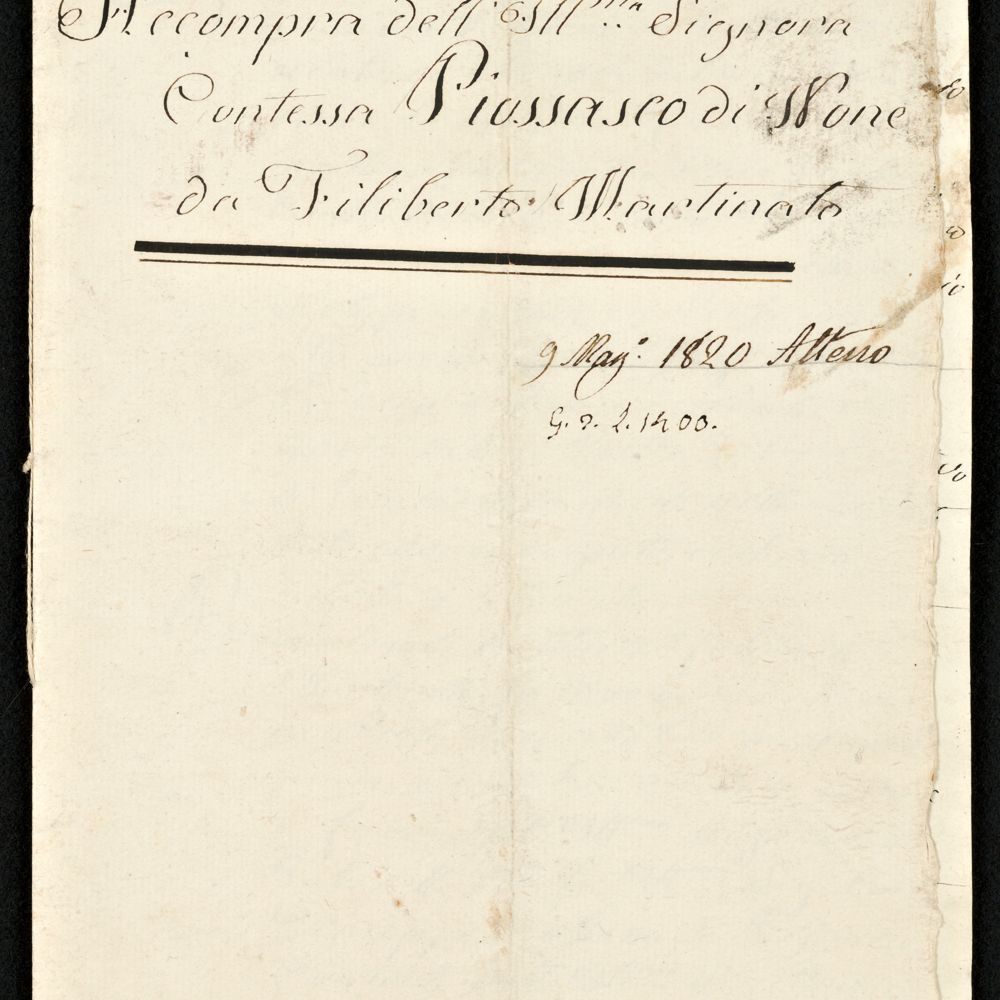 Accompra dell' Ill.ma Signora
Contessa Piossasco di None
da Filiberto Martinato
9 Mag.o 1820 Alteno
G. 2. L. 1400.